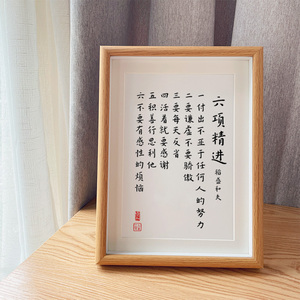 六项精进
稻盛和夫
一付出不亚于任何人的努力
二要谦虚不要骄傲
三要每天反省
四活着就要感谢
五积善行思利他
六不要有感性的烦恼